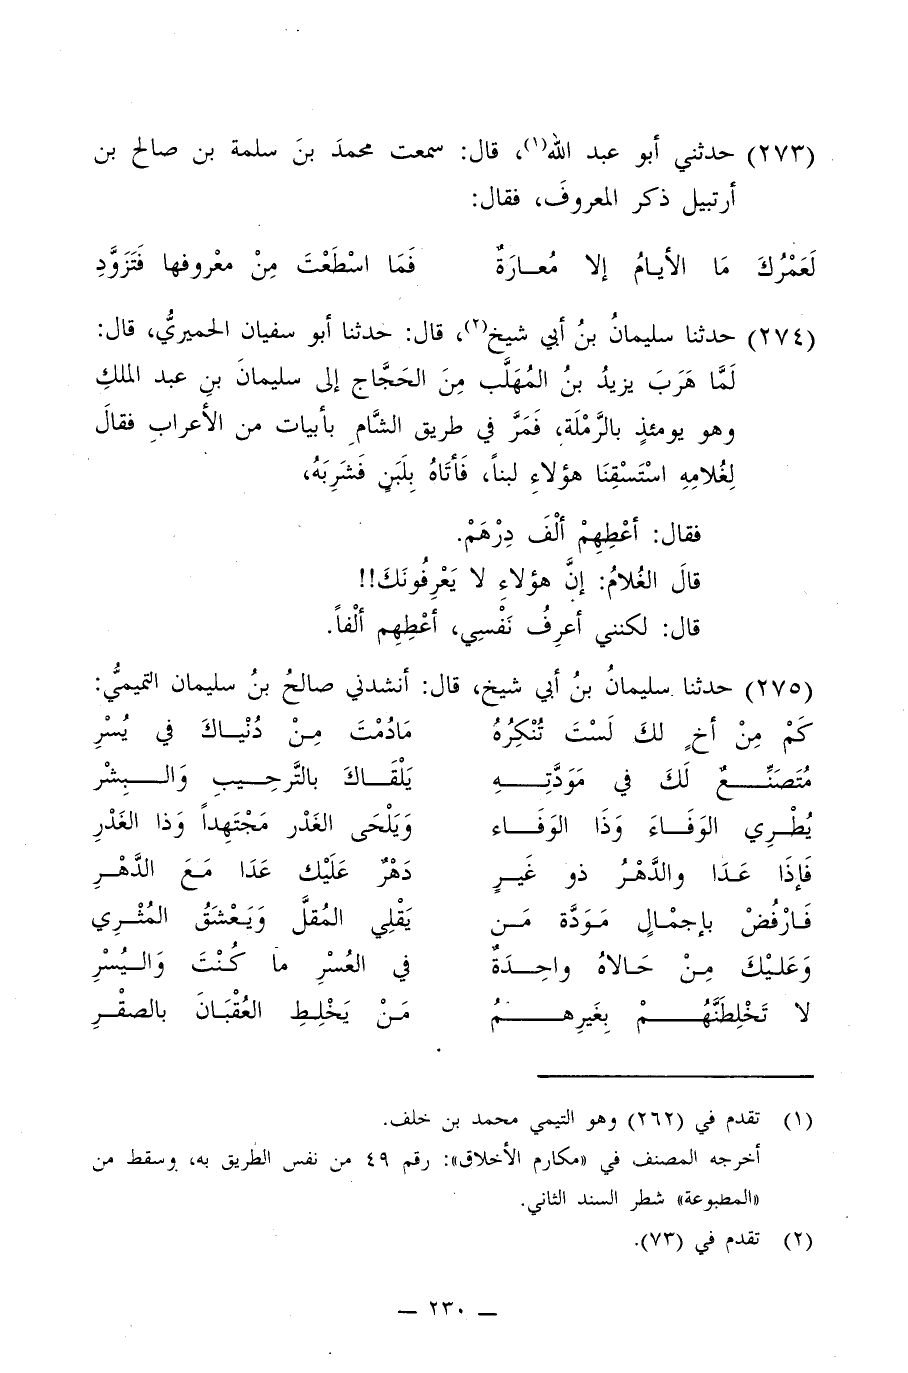 (٢٧٣) حدثني أبو عبد الله(١)، قال: سمعت محمدَ بنَ سلمة بن صالح بن
أرتبيل ذكر المعروفَ، فقال:
لَعَمْرُكَ مَا الأيـامُ إلا مُعـارَةٌ فَمَا اسْطَعْتَ مِنْ معْروفها فَتَزَوَّدِ
(٢٧٤) حدثنا سليمانُ بنُ أبي شيخ(٢)، قال: حدثنا أبو سفيان الحميريُّ، قال:
لَمَّا هَرَبَ يزيدُ بنُ المُهَلَّب مِنَ الحَجَّاج إلى سليمانَ بنِ عبد الملكِ
وهو يومئذٍ بالرَّمْلَة، فَمَرَّ في طريق الشَّامِ بأبيات من الأعرابِ فقالَ
لِغُلامِهِ اسْتَسْقِنَا هؤلاءِ لبناً، فَأتَاهُ بِلَبَنٍ فَشَرِبَهُ،
فقال: أعْطِهِمْ ألْفَ دِرْهَمْ.
قالَ الغُلامُ: إنَّ هؤلاءِ لا يَعْرِفُونَكَ!!
قال: لكنني أعرِفُ نَفْسِي، أعْطِهِم ألْفاً.
(٢٧٥) حدثنا سليمانُ بنُ أبي شيخ، قال: أنشدني صالحُ بنُ سليمان التميميُّ:
كَمْ مِنْ أخٍ لكَ لَسْتَ تُنْكِرُهُ مَادُمْتَ مِـنْ دُنْيـاكَ في يُسْرِ
مُتَصَنِّـــعٌ لَكَ في مَوَدَّتِــهِ يَلْقَـاكَ بالتَّرحِـيبِ وَالــبِشْر
يُطْـرِي الوَفَـاءَ وَذَا الوَفَـاء وَيَلْحَى الغَدْر مجْتهِداً وَذا الغَدْرِ
فَإذَا عَـدَا والدَّهْـرُ ذو غَيرٍ دَهْرٌ عَلَيْك عَدَا مَـعَ الدَّهْـرِ
فَـارْفُضْ بإجْمْـالٍ مَـوَدَّة مَـن يَقْلِي المُقلَّ وَيَـعْشَقُ المُثْـرِي
وَعَليْكَ مِـنْ حَـالاهُ واحِـدَةٌ في العُسْرِ ما كُـنْتَ وَاليُسْرِ
لا تَخْلِطَنَّهُــــمْ بِغَيرِهـــمُ مَـنْ يَخْلِـطِ العُقْبَـانَ بالصقْـرِ
(١) تقدم في (٢٦٢) وهو التيمي محمد بن خلف.
أخرجه المصنف في «مكارم الأخلاق»: رقم ٤٩ من نفس الطريق به، وسقط من
«المطبوعة» شطر السند الثاني.
(٢) تقدم في (٧٣).
— ٢٣٠ —